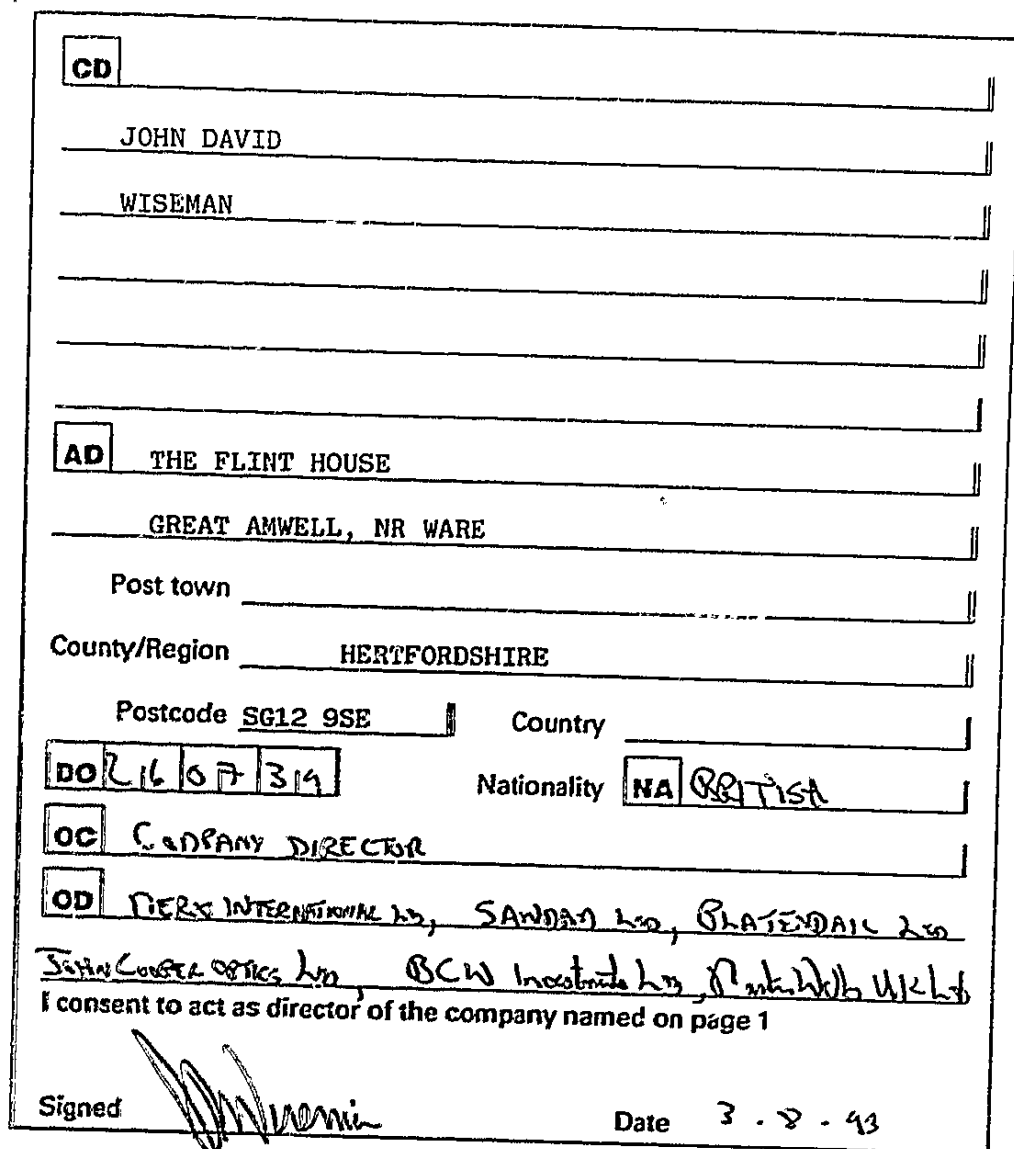 CD
JOHN DAVID
WISEMAN
AD THE FLINT HOUSE
GREAT AMWELL, NR WARE
Post town
County/Region HERTFORDSHIRE
Postcode SG12 9SE Country
DO 26 07 39 Nationality NA BRITISH
OC COMPANY DIRECTOR
OD INTERNATIONAL Ltd, Ltd, Ltd
JOHN COOPER OPTICS Ltd, BCW Investments Ltd, UK Ltd
I consent to act as director of the company named on page 1
Signed Date 3.8.93